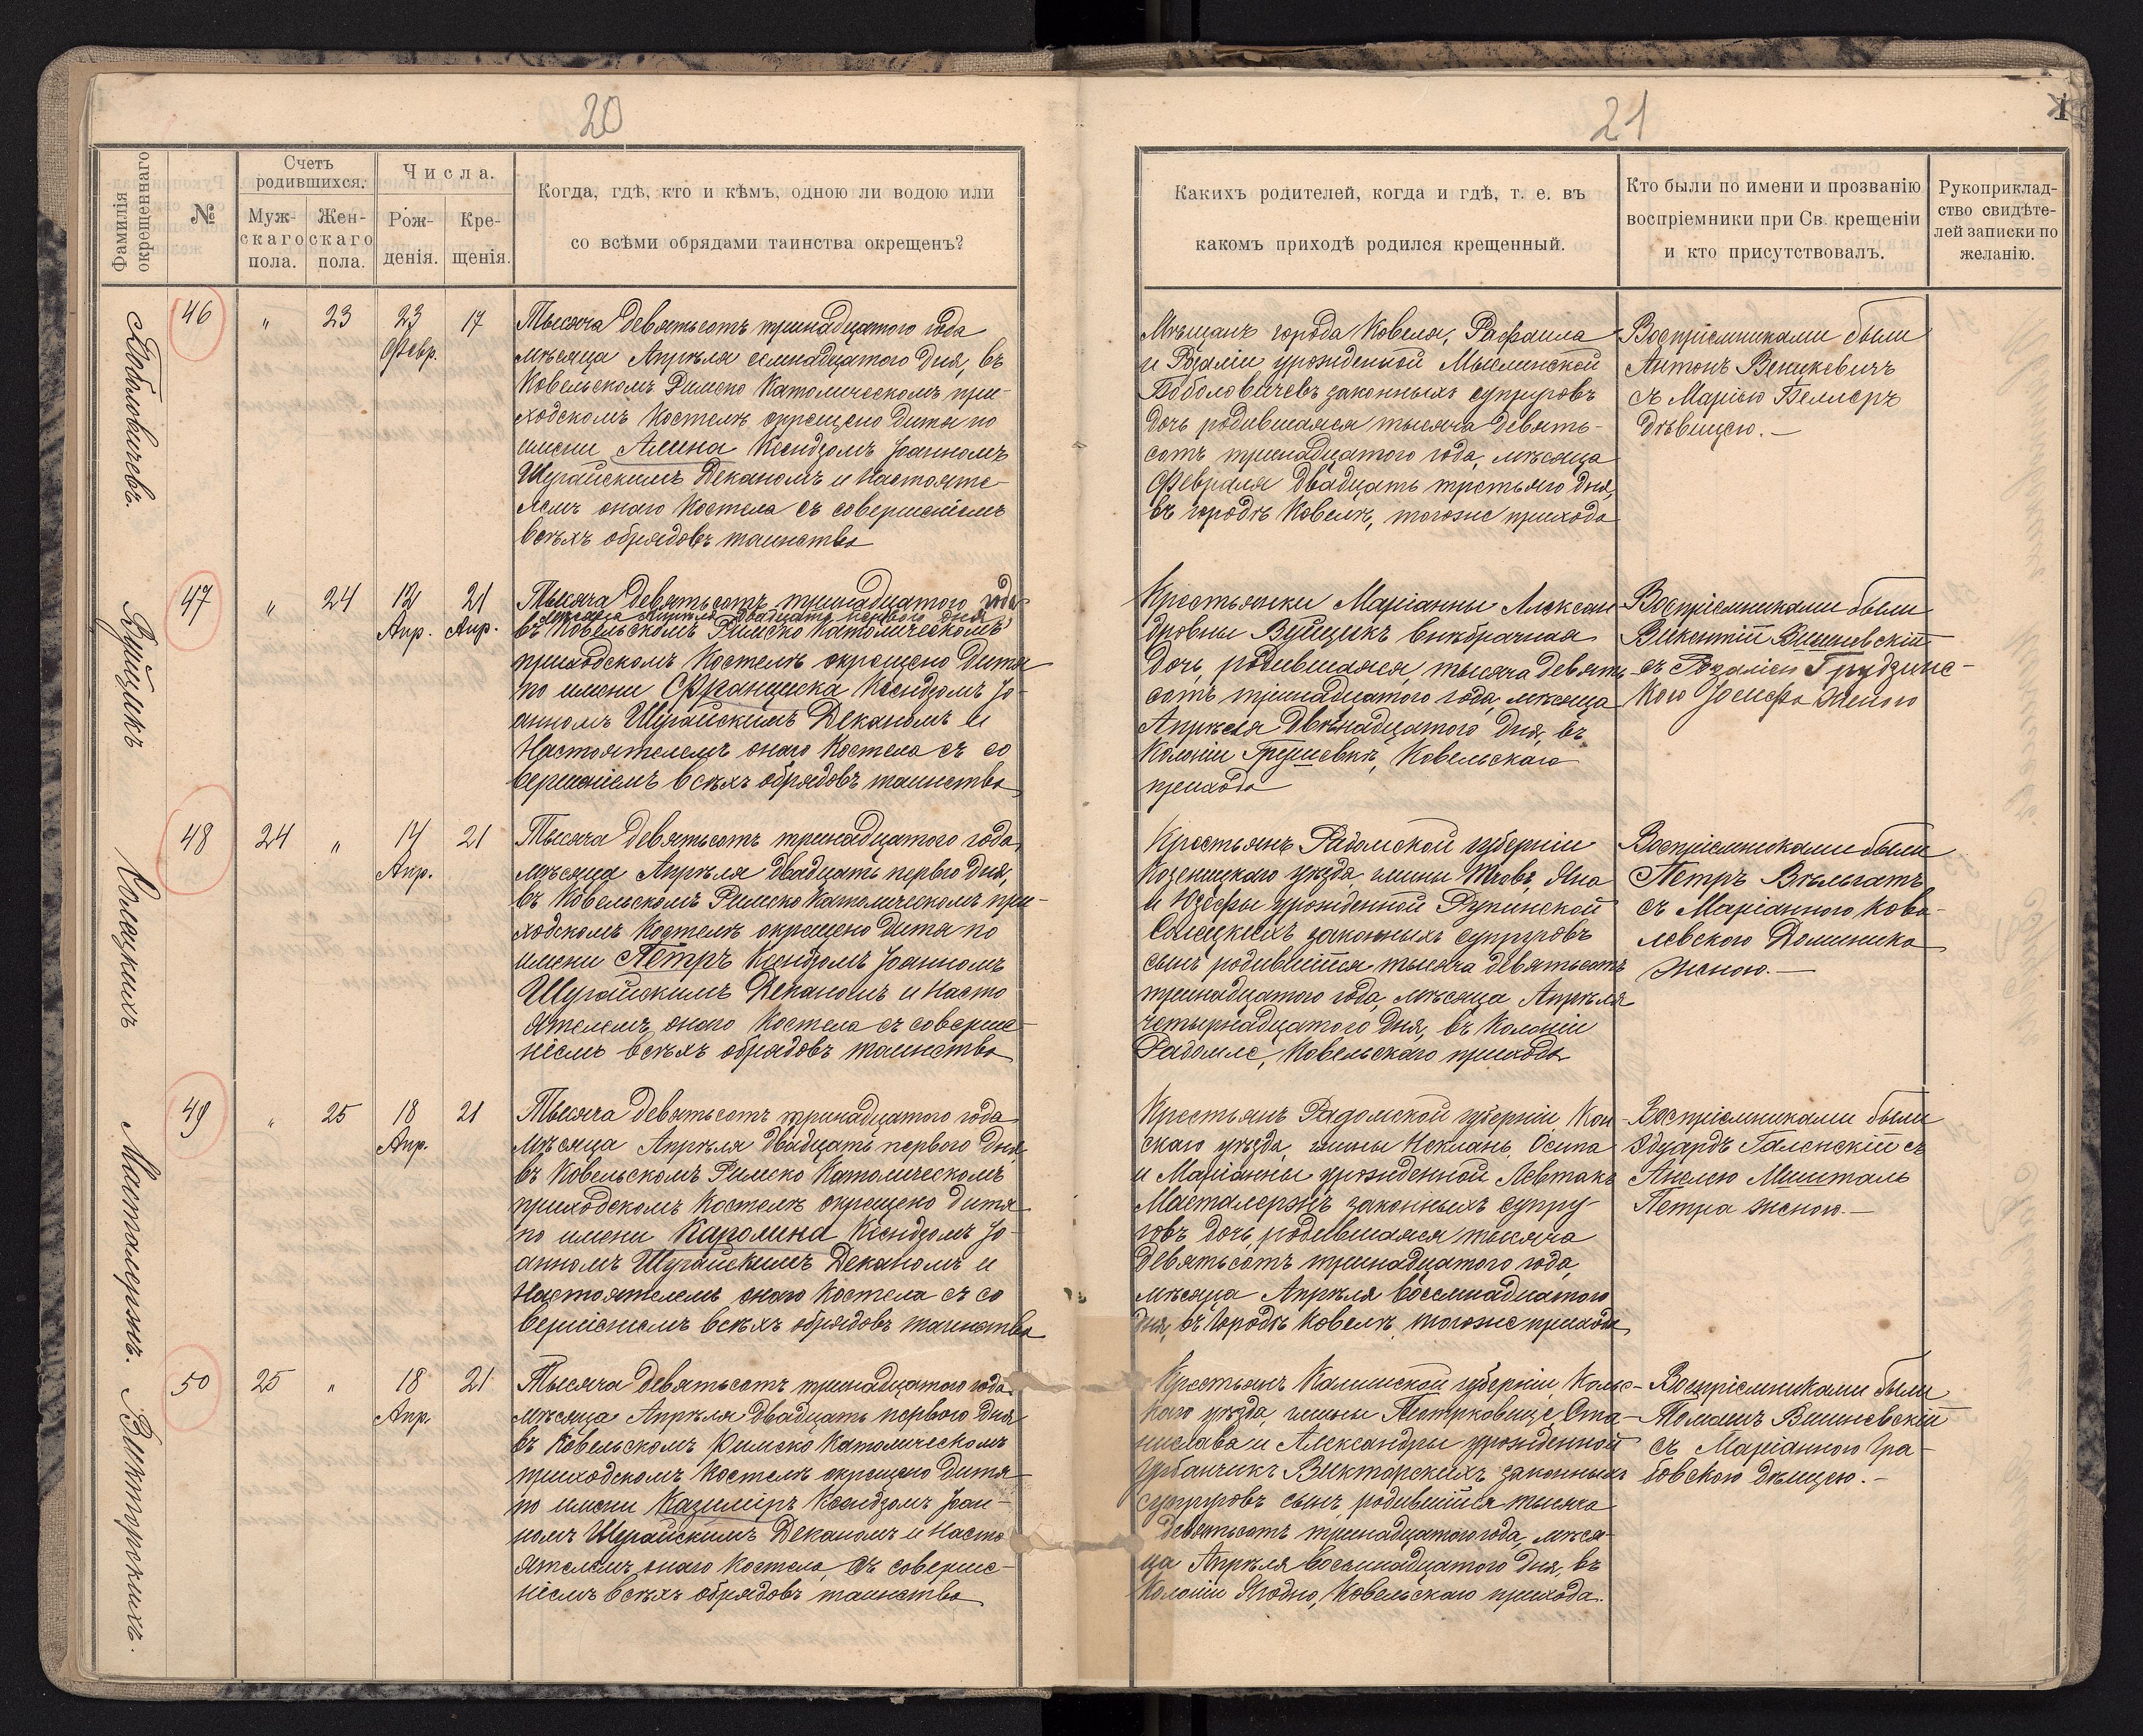 20
Фамилія окрещеннаго
№
Счетъ родившихся.
Мужскаго пола.
Женскаго пола.
Числа.
Рожденія.
Крещенія.
Когда, гдѣ, кто и кѣмъ, одною ли водою или
со всѣми обрядами таинства окрещенъ?
46
"
23
23
Февр.
17
Тысяча девятьсотъ тринадцатого года
мѣсяца Апрѣля семнадцатого дня, въ
Ковельскомъ Римско Католическомъ при-
ходскомъ Костелѣ окрещено дитя по
имени Алина Ксендзомъ Іоанномъ
Деканомъ и Настояте-
лемъ онаго Костела съ совершеніемъ
всѣхъ обрядовъ таинства
Войцикъ
47
"
24
12
Апр.
21
Апр.
Тысяча девятьсотъ тринадцатого года
мѣсяца Апрѣля двадцать перваго дня
въ Ковельскомъ Римско Католическомъ
приходскомъ Костелѣ окрещено дитя
по имени Франциска Ксендзомъ Іо-
анномъ Деканомъ и
Настоятелемъ онаго Костела съ со
вершеніемъ всѣхъ обрядовъ таинства
48
24
"
14
Апр.
21
Тысяча девятьсотъ тринадцатого года
мѣсяца Апрѣля двадцать перваго дня,
въ Ковельскомъ Римско Католическомъ при-
ходскомъ Костелѣ окрещено дитя по
имени Петръ Ксендзомъ Іоанномъ
Деканомъ и Насто
ятелемъ онаго Костела съ соверше-
ніемъ всѣхъ обрядовъ таинства
Масталержъ.
49
"
25
18
Апр.
21
Тысяча девятьсотъ тринадцатого года
мѣсяца Апрѣля двадцать первого дня
въ Ковельскомъ Римско Католическомъ
приходскомъ Костелѣ окрещено дитя
по имени Каролина Ксендзомъ Іо-
анномъ Деканомъ и
Настоятелемъ онаго Костела съ со
вершеніемъ всѣхъ обрядовъ таинства
Викторскихъ.
50
25
"
18
Апр.
21
Тысяча девятьсотъ тринадцатого года
мѣсяца Апрѣля двадцать первого дня
въ Ковельскомъ Римско Католическомъ
приходскомъ Костелѣ окрещено дитя
по имени Казимиръ Ксендзомъ Іоан-
номъ Деканомъ и Насто
ятелемъ онаго Костела, съ соверше-
ніемъ всѣхъ обрядовъ таинства
21
Какихъ родителей, когда и гдѣ, т. е. въ
какомъ приходѣ родился крещенный.
Кто были по имени и прозванію
воспріемники при Св. крещеніи
и кто присутствовалъ.
Рукоприклад-
ство свидѣте-
лей записки по
желанію.
Мѣщанъ города Ковеля, Рафаила
и Розаліи урожденной Мыслинской
законныхъ супруговъ
дочь родившаяся тысяча девять-
сотъ тринадцатого года, мѣсяца
Февраля двадцать третьяго дня,
въ городѣ Ковелѣ, тогоже прихода
Воспріемниками были
Антонъ
съ Маріею Геллеръ
дѣвицею.—
Крестьянки Маріанны Алексан-
дровны Войцикъ внѣбрачная
дочь, родившаяся, тысяча девять-
сотъ тринадцатого года, мѣсяца
Апрѣля двѣнадцатого дня, въ
Колоніи Грушевкѣ, Ковельскаго
прихода
Воспріемниками были
Викентій Вишневскій
съ Розаліею Грудзинс-
кою Іосифа женою
Крестьянъ Радомской губерніи
Козеницкаго уѣзда, гмины Яна
и Юзефы урожденной Рупинской
законныхъ супруговъ
сынъ родившійся тысяча девятьсотъ
тринадцатого года, мѣсяца Апрѣля
четырнадцатого дня, въ Колоніи
Радомле, Ковельскаго прихода
Воспріемниками были
Петръ
съ Маріанною Кова-
левскою Доминика
женою.—
Крестьянъ Радомской губерніи Кон-
скаго уѣзда, гмины Осипа
и Маріанны урожденной Левтакъ
Масталержъ законныхъ супру-
говъ дочь, родившаяся тысяча
девятьсотъ тринадцатого года,
мѣсяца Апрѣля восемнадцатого
дня, въ городѣ Ковелѣ, тогоже прихода
Воспріемниками были
Эдуардъ Галенскій съ
Анелею Мишталь
Петра женою.—
Крестьянъ Калишской губерніи, Кольс-
каго уѣзда, гмины Ста-
нислава и Александры урожденной
Урбанчикъ Викторскихъ законныхъ
супруговъ сынъ, родившійся тысяча
девятьсотъ тринадцатого года, мѣся-
ца Апрѣля восемнадцатого дня, въ
Колоніи Ягодно, Ковельскаго прихода.
Воспріемниками были
Томашъ Вишневскій
съ Маріанною Гра-
бовскою дѣвицею.—